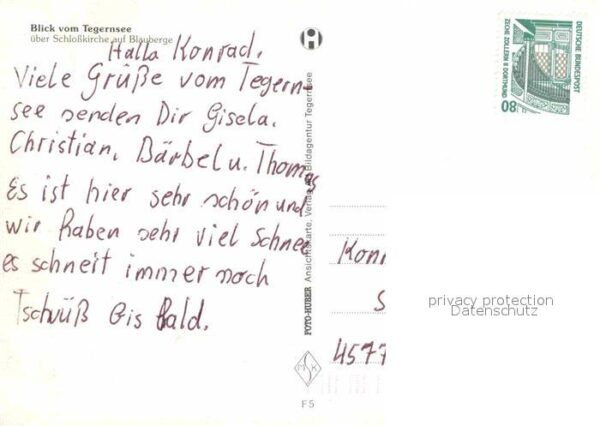 Blick vom Tegernsee
über Schloßkirche auf Blauberge
Hallo Konrad.
Viele Gruße vom Tegern-
see senden Dir Gisela.
Christian, Bärbel u. Thomas
Es ist hier sehr schön und
wir haben sehr viel Schnee
es schneit immer noch
Tschüß bis bald.
FOTO-HUBER Ansichtskarte, Verlag Bildagentur Tegernsee
F 5
DEUTSCHE BUNDESPOST
80
ZECHE ZOLLERN II DORTMUND
Konr
S
4577
privacy protection
Datenschutz